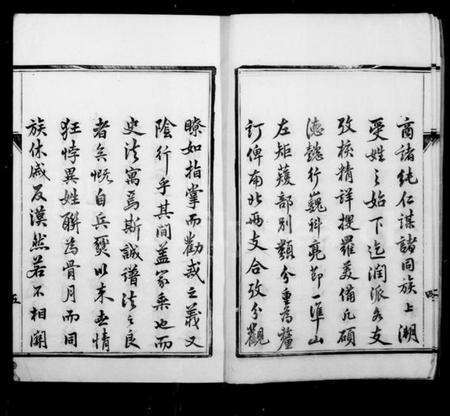 商諸純仁謀諸同族上溯
受姓之始下迄潤派分支
攷核精詳搜羅美備凡碩
德懿行巍科亮節一準山
左矩蒦部別類分重為釐
訂俾南北兩支合攷分觀
瞭如指掌而勸戒之義又
陰行乎其間蓋家乘也而
史法寓焉斯誠譜法之良
者矣慨自兵燹以來世情
狂悖異姓聯為骨月而同
族休戚反漠然若不相關
五